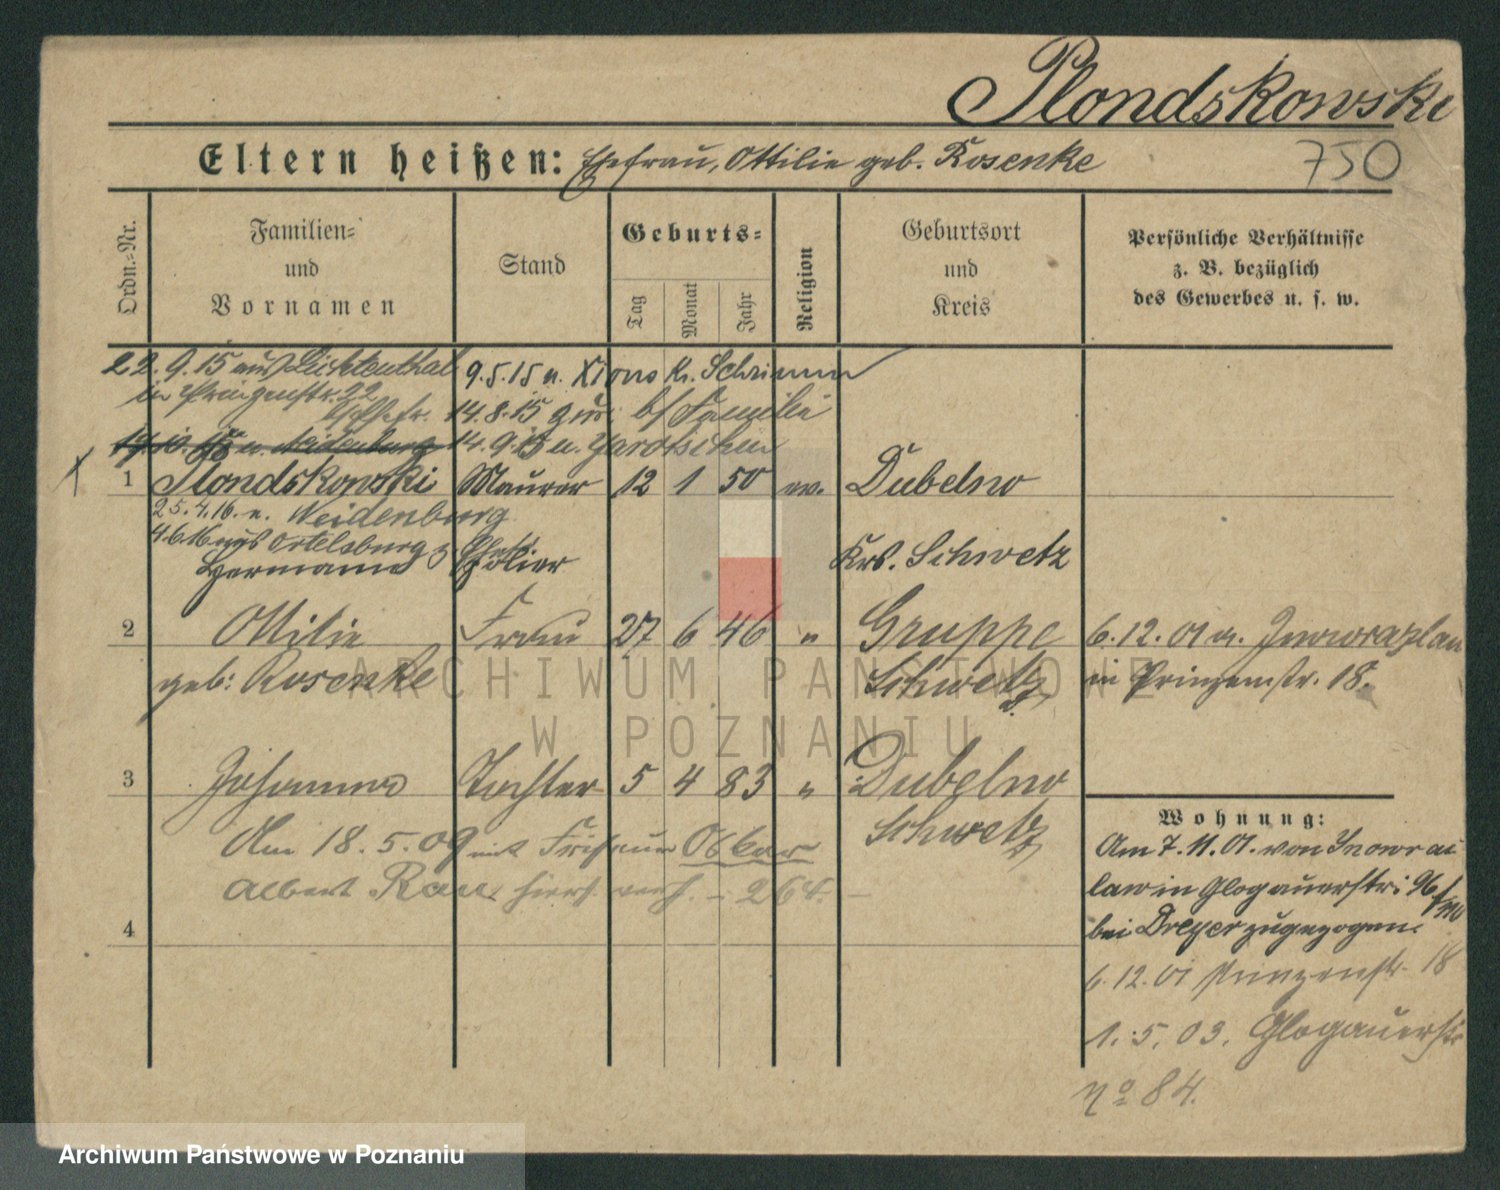 Plondskowski
Eltern heißen: Ehefrau, Ottilie geb. Rosenke 750
Ordn.-Nr.
Familien-
und
Vornamen
Stand
Geburts-
Tag
Monat
Jahr
Religion
Geburtsort
und
Kreis
Persönliche Verhältnisse
z. B. bezüglich
des Gewerbes u. s. w.
22.9.15 aus Lichtenthal 9.5.15 n. Xions Kr. Schrimm
in Prinzenstr. 22
14.8.15 zur. b/ Familie
n. Neidenburg 14.9.15 n. Jarotschin
1 Plondskowski Maurer 12 1 50 ev. Dubelno
25.4.16. n. Neidenburg
4.6.16 aus Ortelsburg
Hermann Polier Krs. Schwetz
2 Ottilie Frau 27 6 46 " Gruppe 6.12.01 a. Inowrazlaw
geb: Rosenke Schwetz in Prinzenstr. 18.
3 Johanna Tochter 5 4 83 " Dubelno
Schwetz
Am 18.5.09 mit Friseur Oskar
Albert Rau hiers. verh. - 264. -
4
Wohnung:
Am 7.11.01. von Inowraz
law in Glogauerstr: 96
bei Dreyer zugezogen.
6.12.01 Prinzenstr. 18
1.5.03. Glogauerstr
No 84.
ARCHIWUM PAŃSTWOWE
W POZNANIU
Archiwum Państwowe w Poznaniu